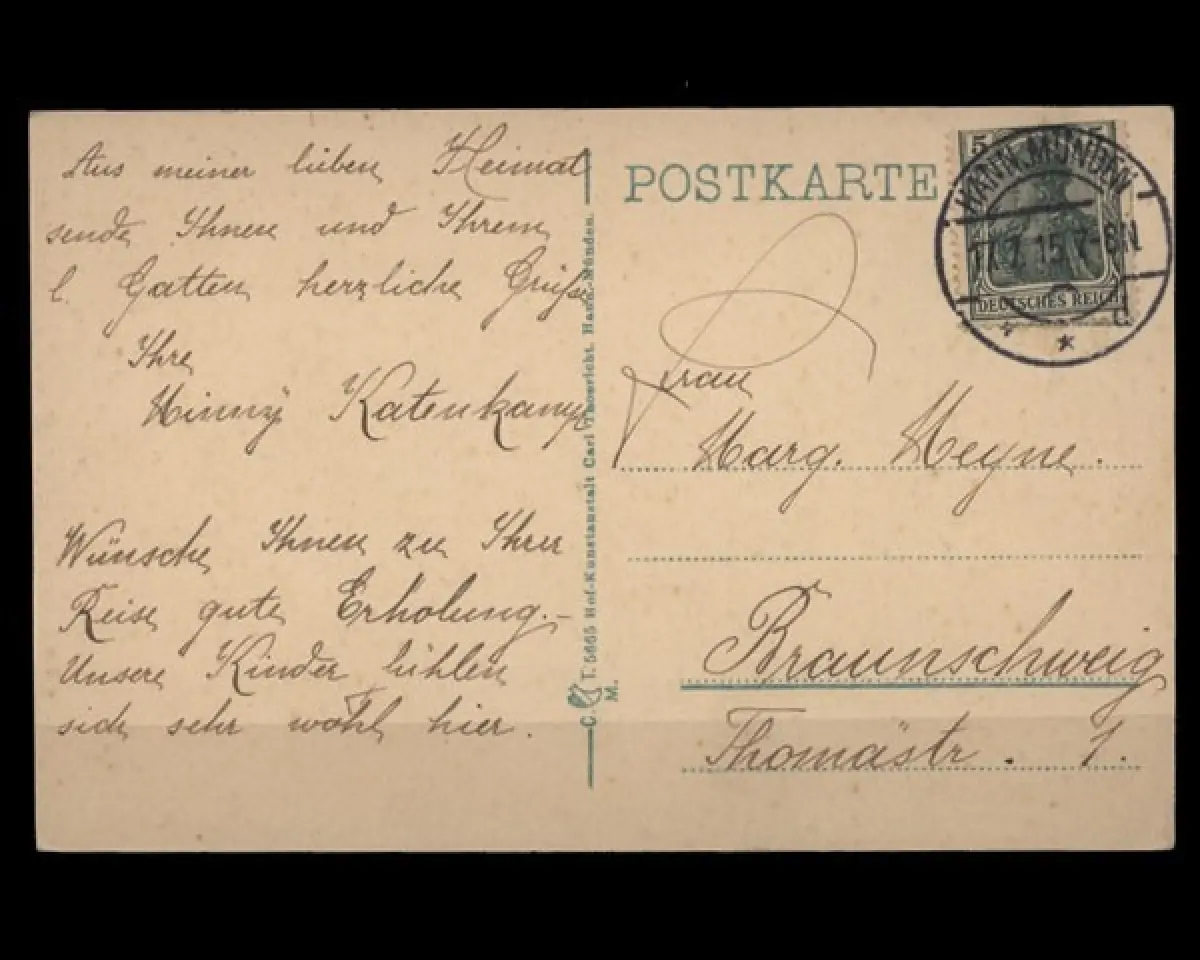 Aus meiner lieben Heimat
sende Ihnen und Ihrem
l. Gatten herzliche Grüße
Ihre
Minny Katenkamp
Wünsche Ihnen zu Ihrer
Reise gute Erholung.-
Unsere Kinder fühlen
sich sehr wohl hier.
C. T. 5665 Hof-Kunstanstalt Carl Thoericht, Hann.-Münden.
M.
POSTKARTE
5 5
DEUTSCHES REICH
HANN. MÜNDEN
17.7.15.7-8N
d
Frau
Marg. Meyne.
Braunschweig
Thomästr. 1.